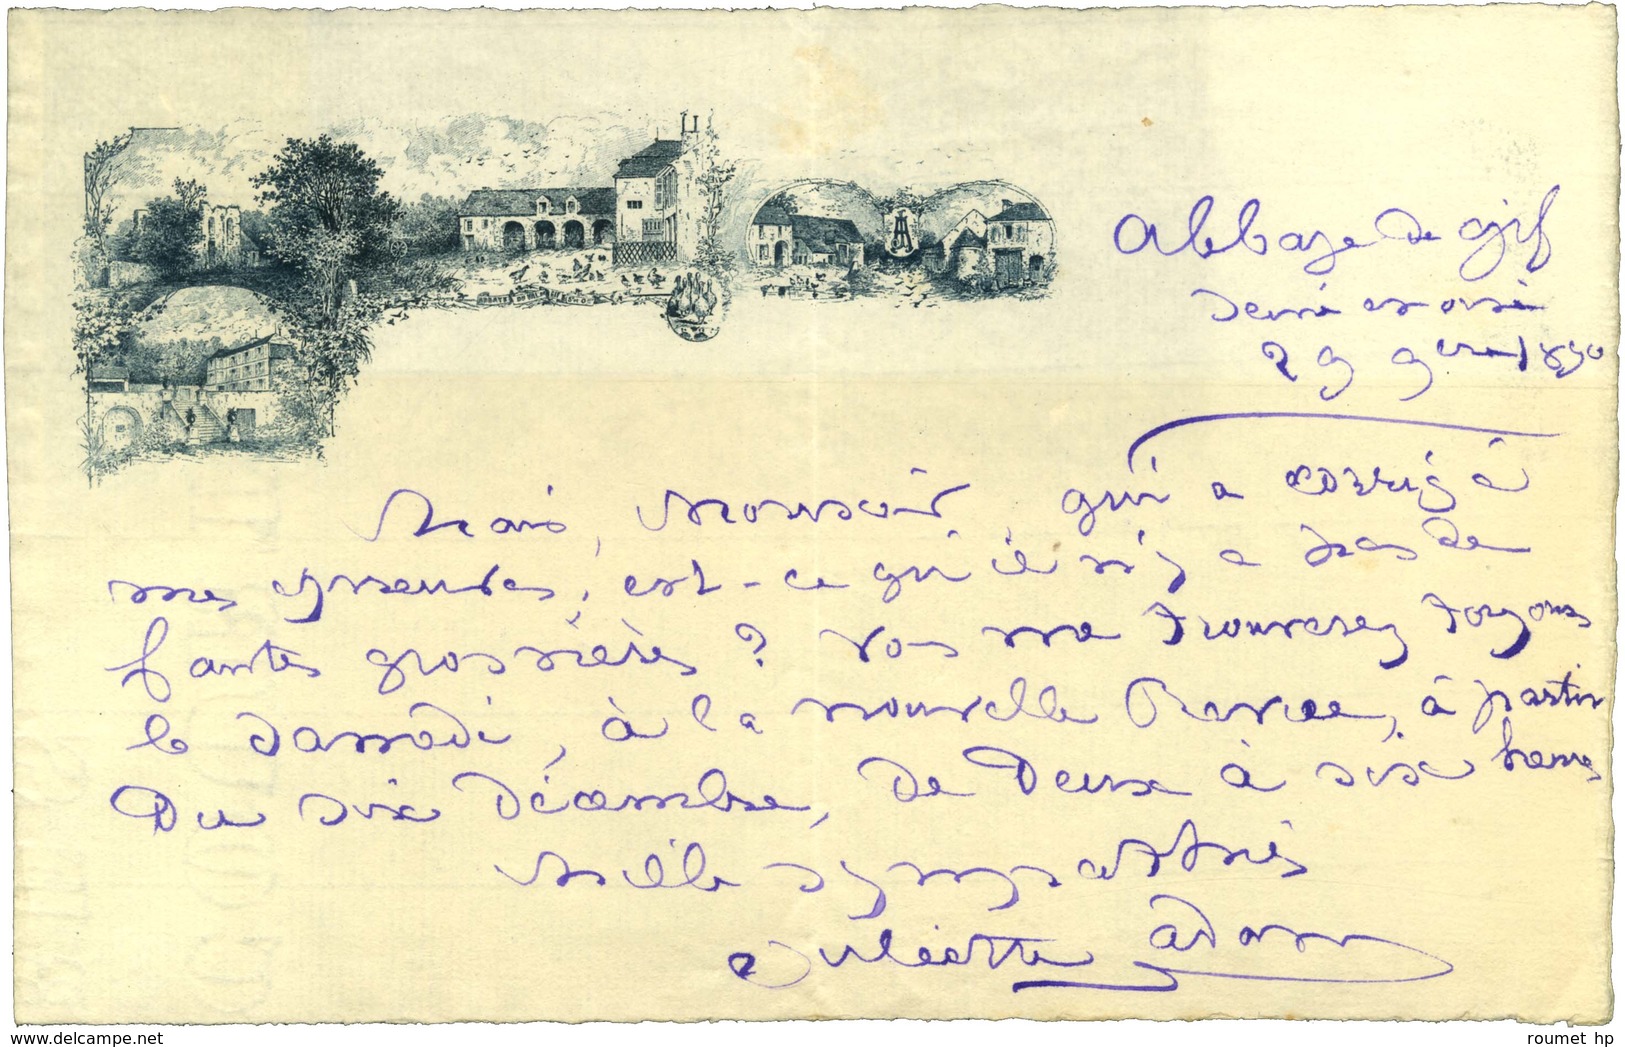 Abbaye de Gif
Seine et oise
29 9bre 1890
Mais, Monsieur, qui a corrigé
mes épreuves, est-ce qu'il n'y a pas de
fautes grossières? Vous me trouverez toujours
le samedi, à la nouvelle Revue, à partir
Du six Décembre, de Deux à six heures
Mille sympathies
Juliette Adam
roumet hp